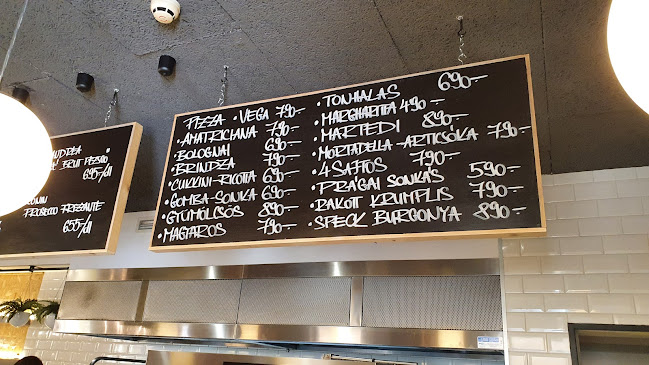 ANDREA
BRUT PEZSGŐ
695/dl
PROSECCO FRIZZANTE
655/dl
PIZZA • VEGA 790.-
• AMATRICIANA 790.-
• BOLOGNAI 690.-
• BRINDZA 790.-
• CUKKINI-RICOTTA 690.-
• GOMBA-SONKA 690.-
• GYÜMÖLCSÖS 890.-
• MAGYAROS 790.-
• TONHALAS 690.-
• MARGHARITA 490.-
• MARTEDI 890.-
• MORTADELLA-ARTICSÓKA 790.-
• 4 SAJTOS 790.-
• PRÁGAI SONKÁS 590.-
• RAKOTT KRUMPLIS 790.-
• SPECK BURGONYA 890.-